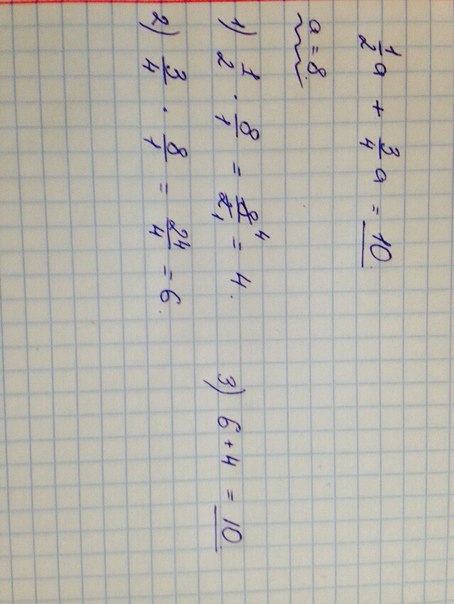 1/2 a + 3/4 a = 10
a = 8
1) 1/2 · 8/1 = 8⁴/2₁ = 4.
2) 3/4 · 8/1 = 24/4 = 6.
3) 6 + 4 = 10